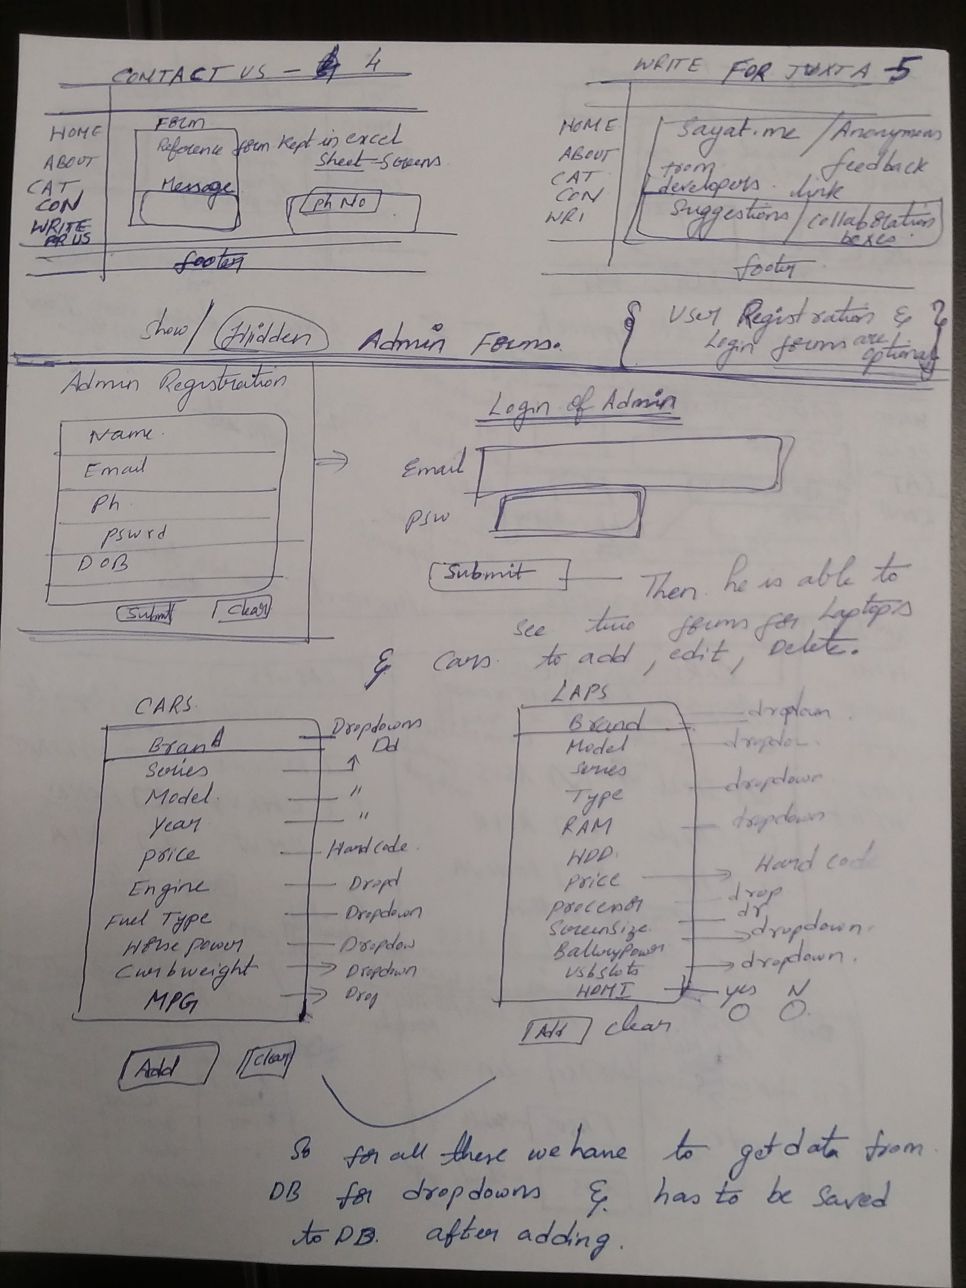 CONTACT US - 4
HOME
ABOUT
CAT
CON
WRITE
FR US
Form
Reference form kept in excel
Sheet - Screens
Message
Ph No
footer
WRITE FOR JUXTA - 5
HOME
ABOUT
CAT
CON
WRI
Sayat.me / Anonymous
from feedback
developers. link
Suggestions / collaboration
boxes.
footer
Show / Hidden Admin Forms.
{ User Registration & }
Login forms are
optional
Admin Registration
Name
Email
Ph
pswrd
DOB
Submit Clear
Login of Admin
Email
psw
Submit
Then he is able to
see two forms for Laptops
& Cars to add, edit, Delete.
CARS
Brand Dropdowns
Dd
Series
Model "
Year "
Price Hardcode
Engine Dropd
Fuel Type Dropdown
Horse power Dropdow
Curbweight Dropdown
MPG Drop
Add Clear
LAPS
Brand dropdown
Model dropdow.
Series
Type dropdown
RAM dropdown
HDD
Price Hard code
processor drop
ScreenSize dr
BatteryPower dropdown.
Usbslots dropdown.
HDMI yes N
Add clear
So for all these we have to get data from
DB for dropdowns & has to be saved
to DB. after adding.